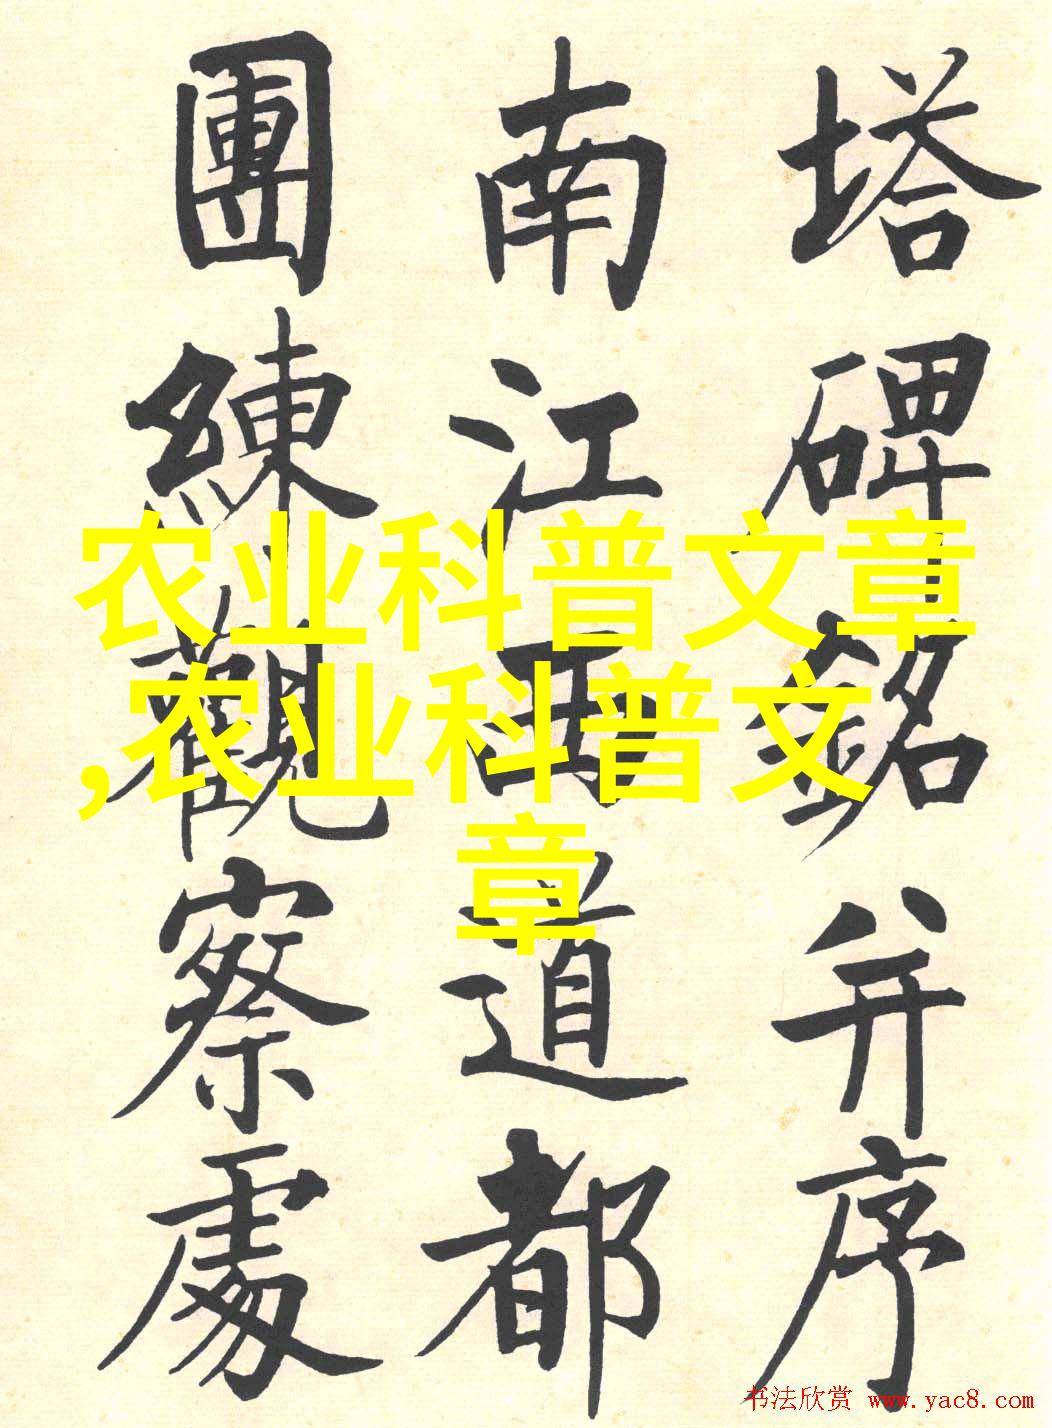 塔碑銘并序
南江西道都
團練觀察處
农业科普文章
,农业科普文
章
书法欣赏 www.yac8.com